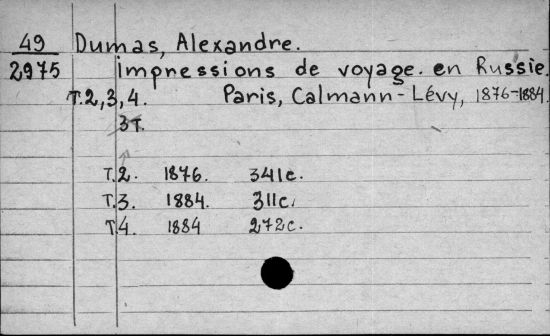 49 Dumas, Alexandre.
2975 Impressions de voyage. en Russie.
T.2,3,4. Paris, Calmann-Lévy, 1876-1884.
3т.
T.2. 1876. 341c.
T.3. 1884. 311c.
T.4. 1884 272c.